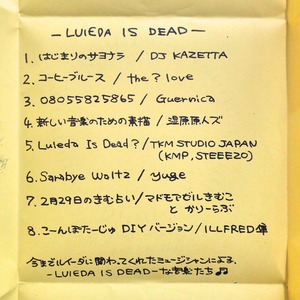 — LUIEDA IS DEAD —
1. はじまりのサヨナラ / DJ KAZETTA
2. コーヒーブルース / the? love
3. 08055825865 / Guernica
4. 新しい音楽のための素描 / 湿原原人ズ
5. Luieda Is Dead? / TKM STUDIO JAPAN
(KMP, STEEEZO)
6. Sarabye Waltz / yuge
7. 2月29日のきむ占い / マドモアゼルきむこ
と かりーらぶ
8. こーんぽたーじゅ DIY バージョン / ILLFRED傘
今までルイーダに関わってくれたミュージシャンによる、
-LUIEDA IS DEAD- な音楽たち♫